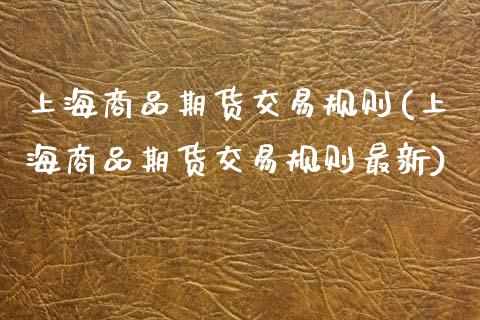 上海商品期货交易规则(上
海商品期货交易规则最新)